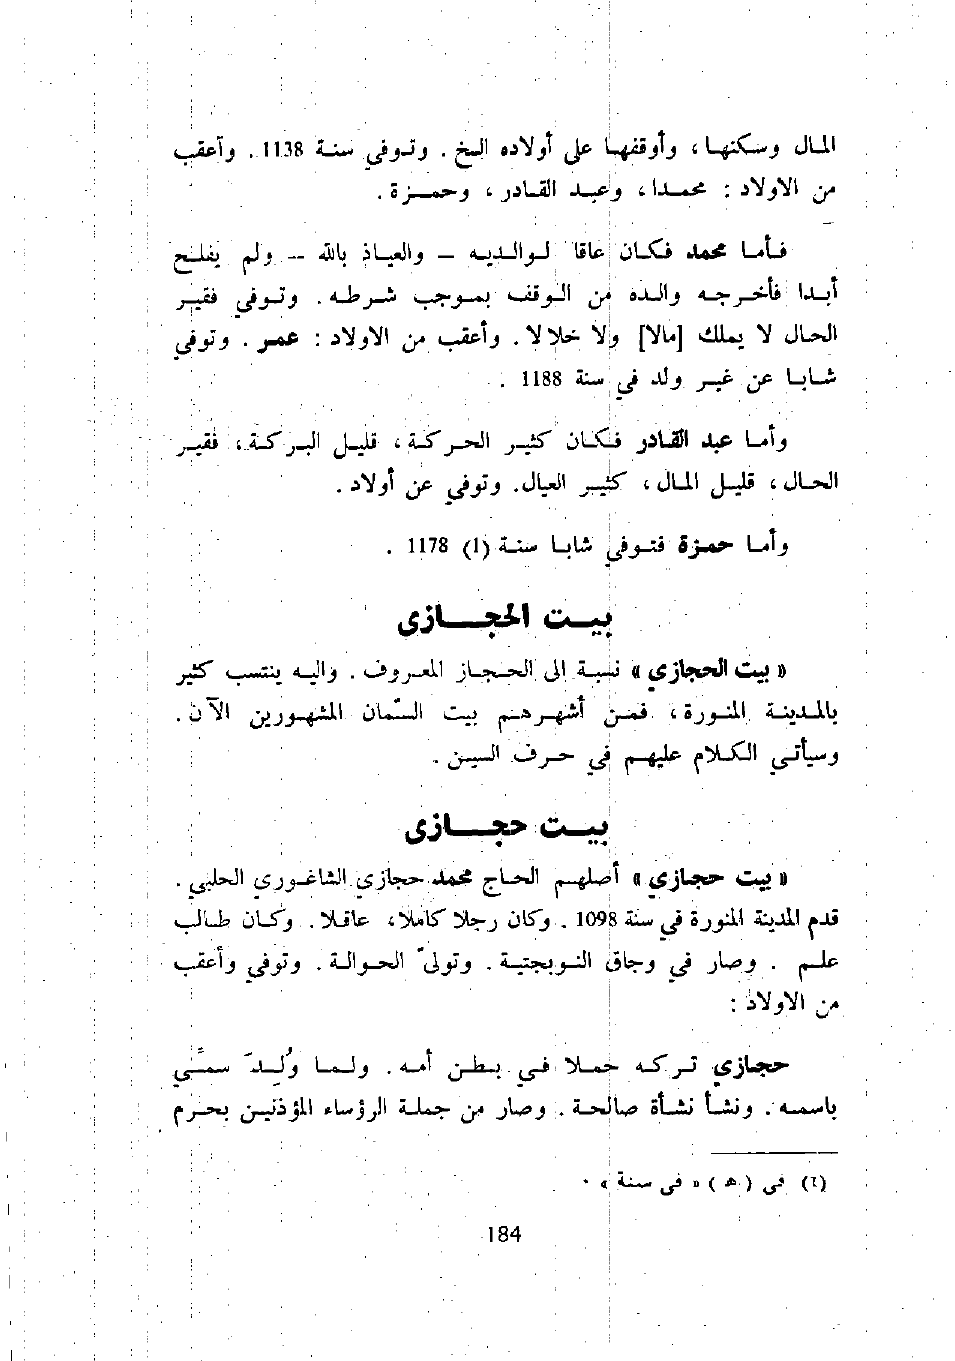 المال وسكنها ، وأوقفها على أولاده الخ . وتوفي سنة 1138 . وأعقب
من الاولاد : محمدا ، وعبد القادر ، وحمزة .
فأما محمد فكان عاقا لوالديه – والعياذ بالله – ولم يفلح
أبدا فأخرجه والده من الوقف بموجب شرطه . وتوفي فقير
الحال لا يملك [مالا] ولا خلالا . وأعقب من الاولاد : عمر . وتوفي
شابا عن غير ولد في سنة 1188 .
وأما عبد القادر فكان كثير الحركة ، قليل البركة ، فقير
الحال ، قليل المال ، كثير العيال . وتوفي عن أولاد .
وأما حمزة فتوفي شابا سنة (1) 1178 .
بيت الحجازى
« بيت الحجازي » نسبة الى الحجاز المعروف . واليه ينتسب كثير
بالمدينة المنورة ، فمن أشهرهم بيت السّمان المشهورين الآن .
وسيأتي الكلام عليهم في حرف السين .
بيت حجازى
« بيت حجازي » أصلهم الحاج محمد حجازي الشاغوري الحلبي .
قدم المدينة المنورة في سنة 1098 . وكان رجلا كاملا ، عاقلا . وكان طالب
علم . وصار في وجاق النوبجتية . وتولىّ الحوالة . وتوفي وأعقب
من الاولاد :
حجازي تركه حملا في بطن أمه . ولما وُلدَ سمّي
باسمه . ونشأ نشأة صالحة . وصار من جملة الرؤساء المؤذنين بحرم
(1) في ( هـ ) « في سنة » .
184